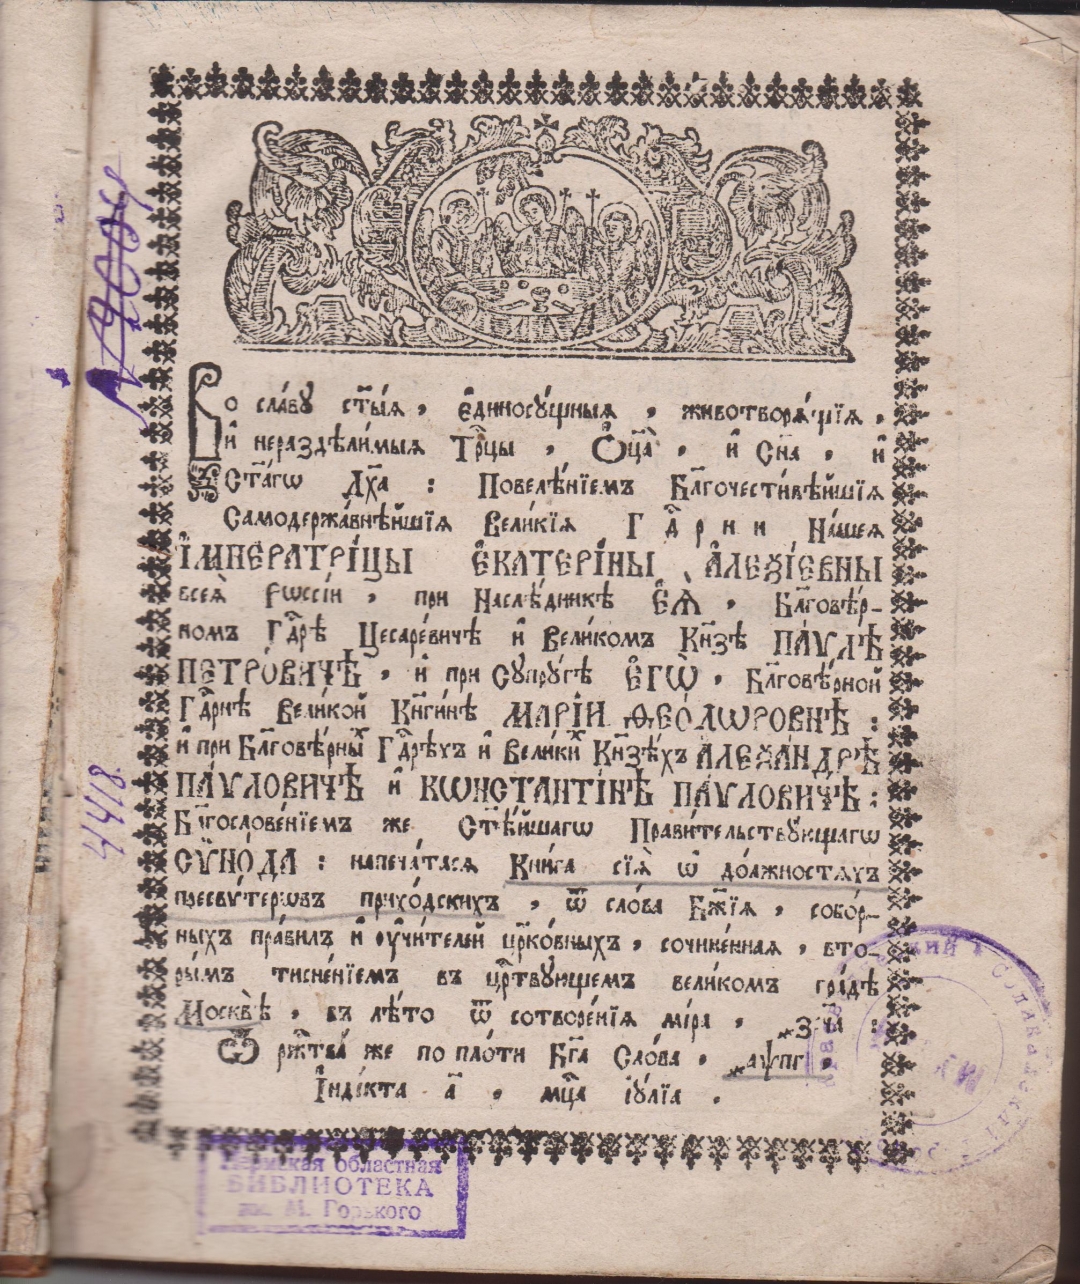 Во сла́вꙋ ст҃ы́ѧ , є҆диносꙋ́щныѧ , животворѧ́щїѧ ,
и҆ нераздѣли́мыѧ Трⷪ҇цы , Ѻ҆ц҃а̀ , и҆ Сн҃а , и҆
Ст҃а́гѡ Дх҃а : Повелѣ́нїемъ Бл҃гочести́вѣйшїѧ
Самодержа́внѣйшїѧ Вели́кїѧ Гдⷭ҇рни На́шеѧ
І҆МПЕРАТРІ́ЦЫ Є҆КАТЕРІ́НЫ А҆ЛЕѮІ́ЕВНЫ
всеѧ̀ рѡссі́и , при Наслѣ́дникѣ Є҆Ѧ̀ , Бл҃говѣ́р-
номъ Гдⷭ҇рѣ Цесаре́вичѣ и҆ Вели́комъ Кн҃зѣ ПА́ѴЛѢ
ПЕТРО́ВИЧѢ , и҆ при Сꙋпрꙋ́гѣ Є҆ГѠ̀ , Бл҃говѣ́рной
Гдⷭ҇рнѣ Вели́кой Кн҃ги́нѣ МАРІ́И ѲЕО́ДѠРОВНѢ :
и҆ при Бл҃говѣ́рныⷯ Гдⷭ҇рѣхъ и҆ Вели́киⷯ Кн҃зѣ́хъ АЛЕѮА́НДРѢ
ПА́ѴЛОВИЧѢ и҆ КѠНСТАНТІ́НѢ ПА́ѴЛОВИЧѢ :
Бл҃гослове́нїемъ же Ст҃ѣ́йшагѡ Прави́тельствꙋющагѡ
СѴНО́ДА : напеча́тасѧ Кни́га сїѧ̀ ѡ҆ до́лжностѧхъ
пресвѵ́терѡвъ прихо́дскихъ , ѿ сло́ва Бж҃їѧ , собо́р-
ныхъ пра́вилъ и҆ ᲂу҆чи́телей цр҃ко́вныхъ , сочине́ннаѧ , вто-
ры́мъ тисне́нїемъ въ црⷭ҇твꙋющемъ вели́комъ гра́дѣ
Москвѣ̀ , въ лѣ́то ѿ сотворе́нїѧ мі́ра , ҂зс҃ча :
Ѿ ржⷭ҇тва̀ же по пло́ти Бг҃а Сло́ва , ҂аѱпг ,
І҆нді́кта а҃ , мцⷭ҇а і҆ꙋ́лїа .
4418.
Пермская областная
БИБЛИОТЕКА
им. М. Горького